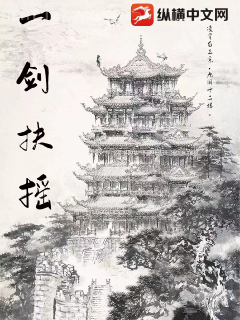 纵横中文网
一剑扶摇